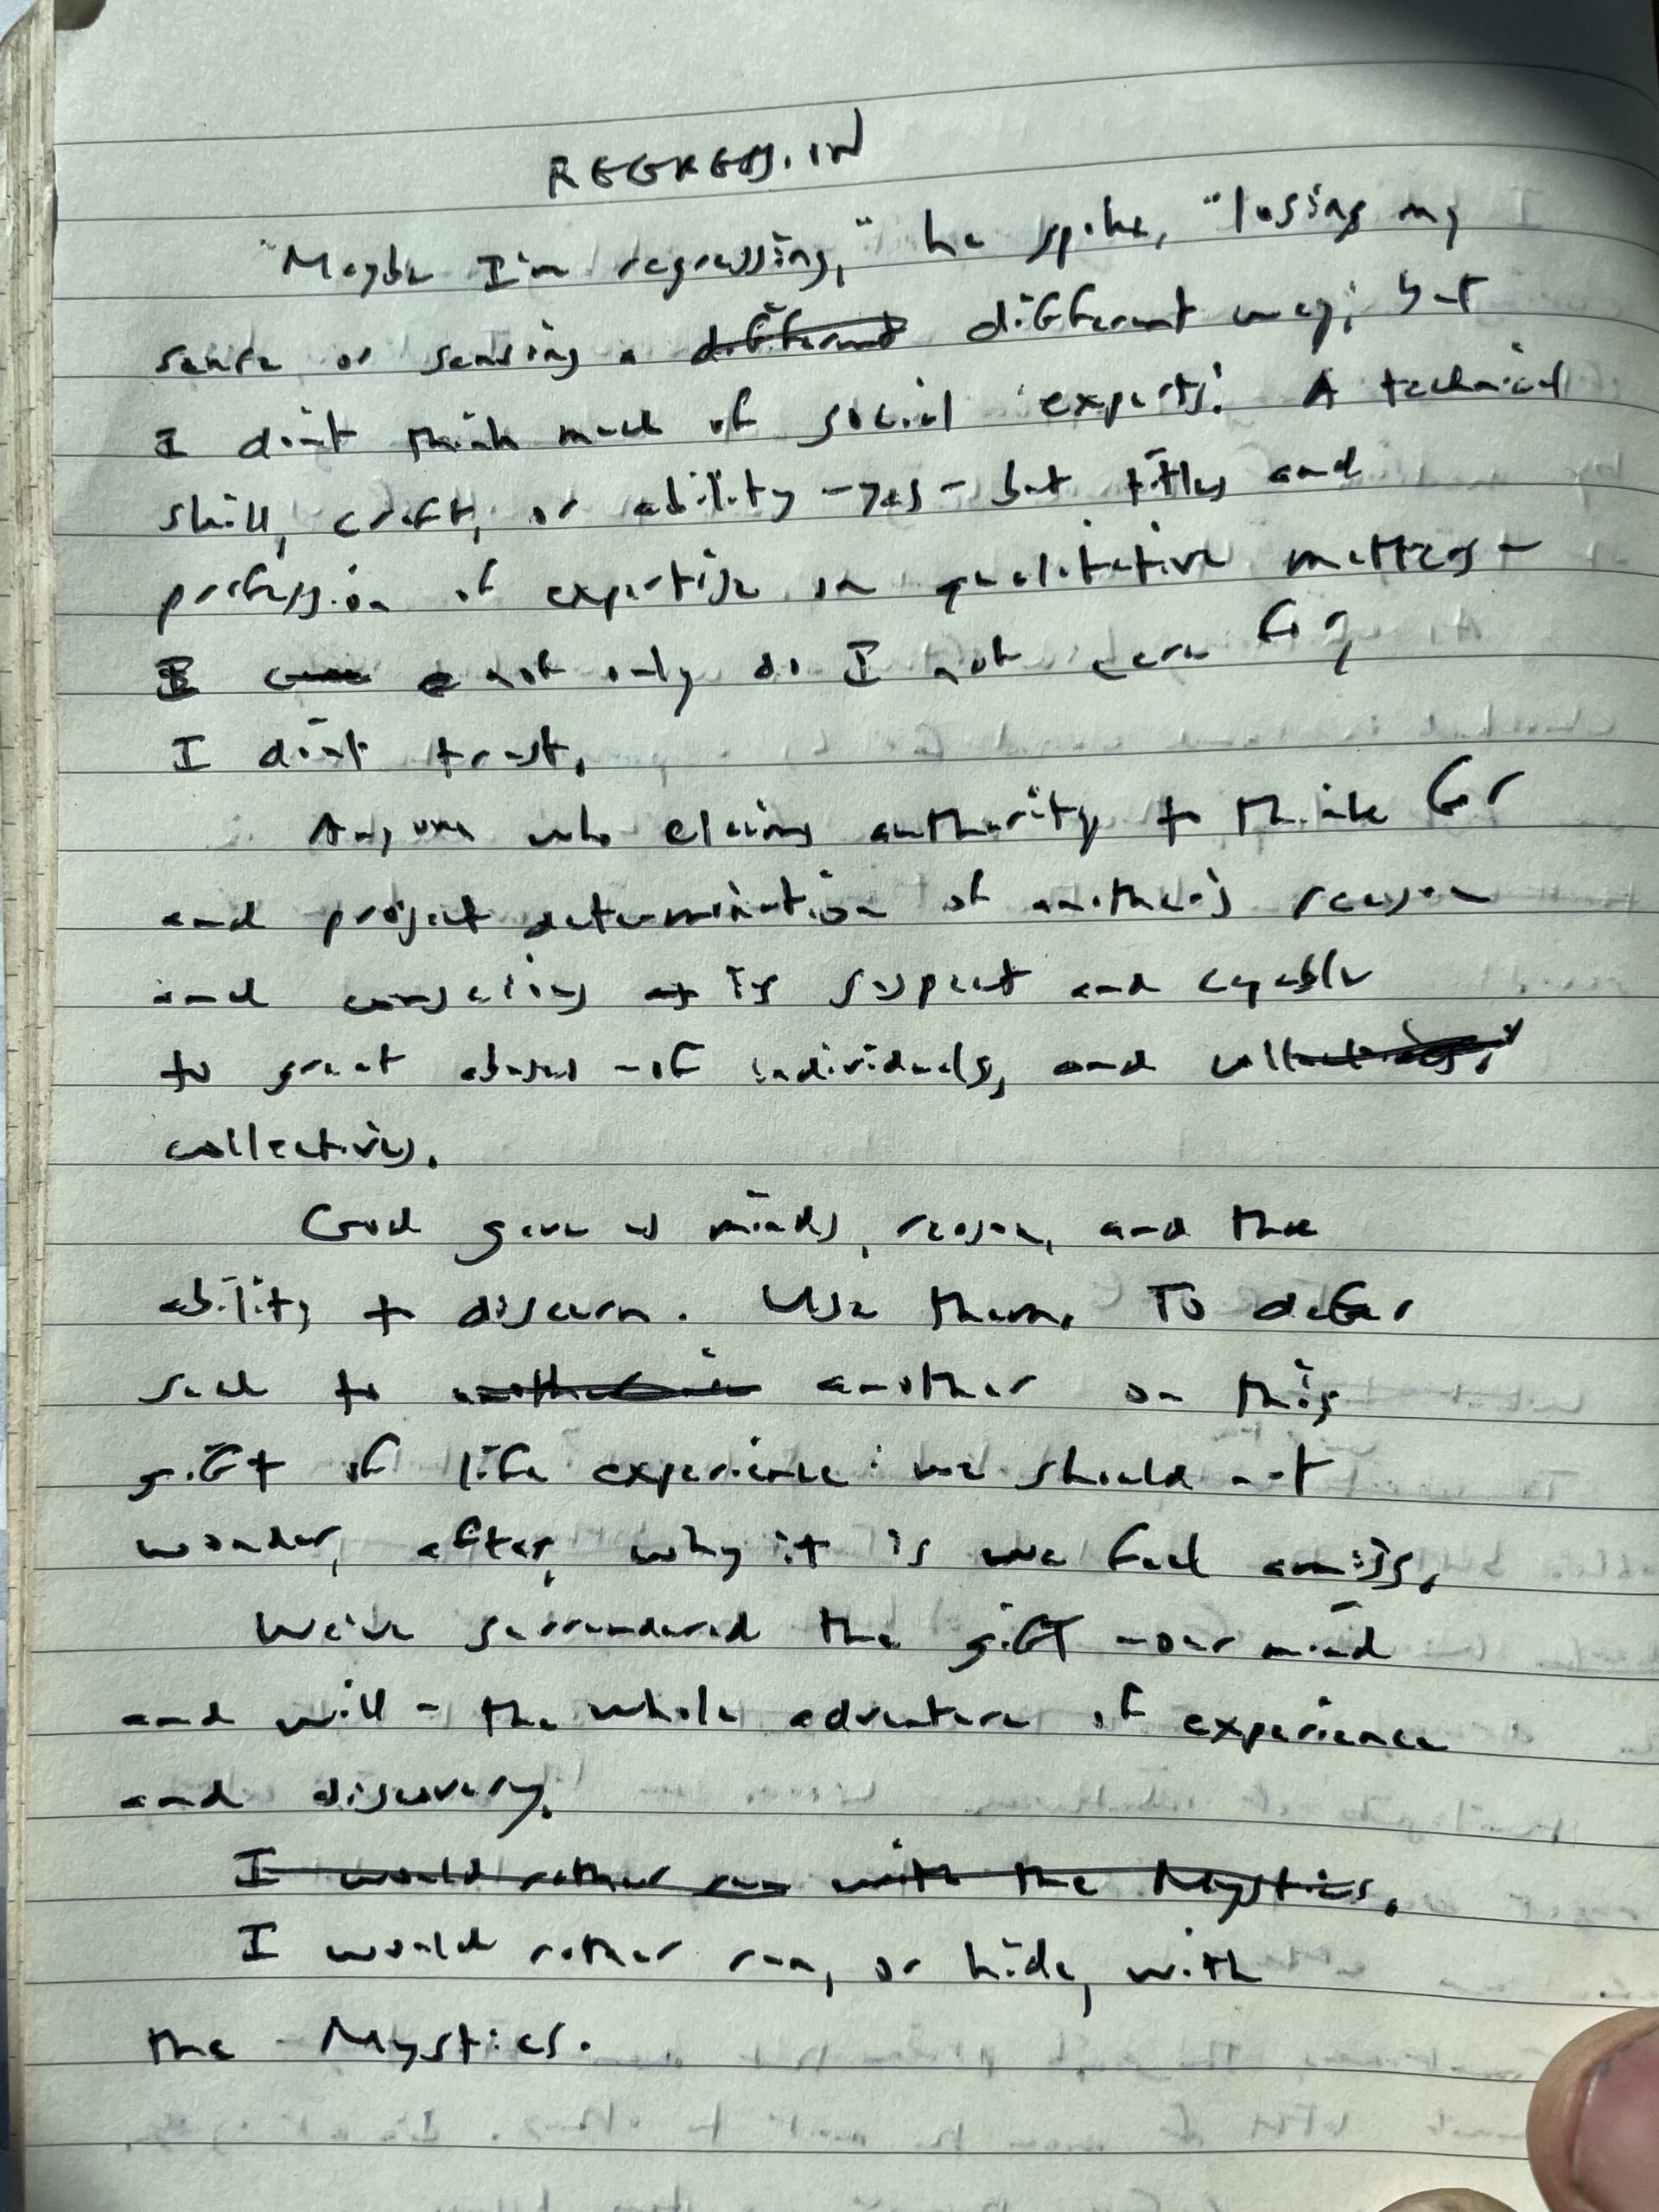 REGRESSION
"Maybe I'm regressing," he spoke, "losing my
sense or sensing a different different way; but
I don't think much of social 'experts.' A technical
skill, craft, or ability - yes - but titles and
profession of expertise on qualitative matters -
I care not only do I not care for,
I don't trust.
Anyone who claims authority to think for
and project determination of another's reason
and conscience is suspect and capable
to great abuses - of individuals, and collectivies,
collectives.
God gave us minds, reason, and the
ability to discern. Use them. To defer
such to another on this
gift of life experience: we should not
wonder, after, why it is we feel amiss.
We've surrendered the gift - our mind
and will - the whole adventure of experience
and discovery.
I would rather run with the Mystics.
I would rather run, or hide, with
the Mystics.